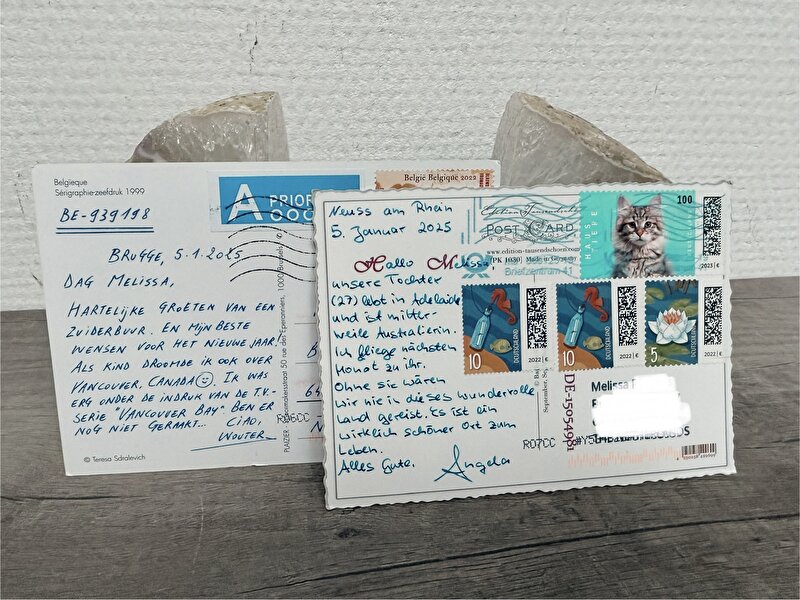 Belgieque
Sérigraphie-zeefdruk 1999
BE-939198
A PRIOR
België Belgique 2022
BRUGGE, 5.1.2025
DAG MELISSA,
HARTELIJKE GROETEN VAN EEN
ZUIDERBUUR. EN MIJN BESTE
WENSEN VOOR HET NIEUWE JAAR!
ALS KIND DROOMDE IK OOK OVER
VANCOUVER, CANADA. IK WAS
ERG ONDER DE INDRUK VAN DE T.V.-
SERIE "VANCOUVER BAY" BEN ER
NOG NIET GERAKT... CIAO,
WOUTER
© Teresa Sdralevich
R06CC
Neuss am Rhein
5. Januar 2025
Hallo Melissa
unsere Tochter
(27) lebt in Adelaide
und ist mittler-
weile Australierin.
Ich fliege nächsten
Monat zu ihr.
Ohne sie wären
wir nie in dieses wundervolle
Land gereist. Es ist ein
wirklich schöner Ort zum
Leben.
Alles Gute.
Angela
Edition Tausendschön
POST CARD
www.edition-tausendschoen.com
(PK 1030) Made in Germany
Briefzentrum 41
100
2023 | €
10
DEUTSCHLAND
2022 | €
10
DEUTSCHLAND
2022 | €
5
DEUTSCHLAND
2022 | €
DE-15054981
Melissa
R07CC